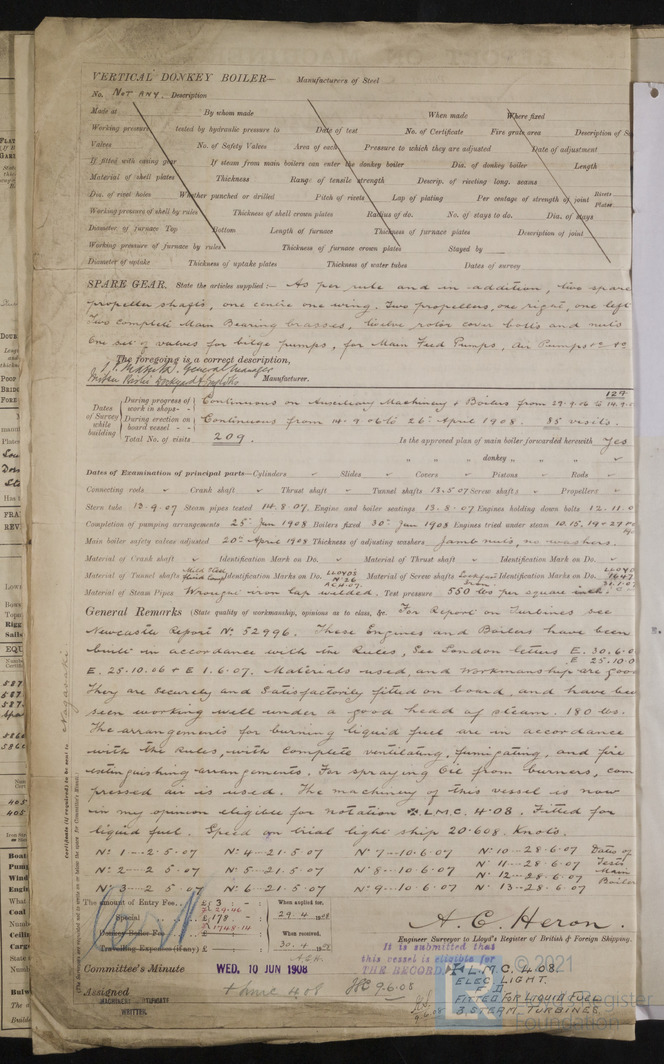 VERTICAL DONKEY BOILER— Manufacturers of Steel
No. Not any. Description
Made at By whom made When made Where fixed
Working pressure tested by hydraulic pressure to Date of test No. of Certificate Fire grate area Description of
Valves No. of Safety Valves Area of each Pressure to which they are adjusted Date of adjustment
If fitted with easing gear If steam from main boilers can enter the donkey boiler Dia. of donkey boiler Length
Material of shell plates Thickness Range of tensile strength Descrip. of riveting long. seams
Dia. of rivet holes Whether punched or drilled Pitch of rivets Lap of plating Per centage of strength of joint Rivets Plates
Working pressure of shell by rules Thickness of shell crown plates Radius of do. No. of stays to do. Dia. of stays
Diameter of furnace Top Bottom Length of furnace Thickness of furnace plates Description of joint
Working pressure of furnace by rules Thickness of furnace crown plates Stayed by
Diameter of uptake Thickness of uptake plates Thickness of water tubes Dates of survey
SPARE GEAR. State the articles supplied:— As per rule and in addition, two spare
propeller shafts, one centre one wing. Two propellers, one right, one left
Two complete Main Bearing brasses, twelve rotor cover bolts and nuts
One set of valves for bilge pumps, for Main Feed Pumps, Air Pumps &c &c
The foregoing is a correct description,
General Manager
Manufacturer.
Dates of Survey while building
During progress of work in shops-- Continuous on Auxiliary Machinery & Boilers from 29.9.06 to 14.9.0
129
During erection on board vessel --- Continuous from 14.9.06 to 26th April 1908. 85 visits.
Total No. of visits 209. Is the approved plan of main boiler forwarded herewith Yes
" " " donkey " " "
Dates of Examination of principal parts—Cylinders Slides Covers Pistons Rods
Connecting rods Crank shaft Thrust shaft Tunnel shafts 13.5.07 Screw shafts Propellers
Stern tube 13.9.07 Steam pipes tested 14.8.07. Engine and boiler seatings 13.8.07 Engines holding down bolts 12.11.0
Completion of pumping arrangements 25th Jan 1908 Boilers fixed 30th Jan 1908 Engines tried under steam 10.15.19.27
Main boiler safety valves adjusted 20th April 1908 Thickness of adjusting washers Jamb nuts, no washers.
Material of Crank shaft Identification Mark on Do. Material of Thrust shaft Identification Mark on Do.
Material of Tunnel shafts Identification Marks on Do. LLOYDS Material of Screw shafts Identification Marks on Do. LLOYD
Material of Steam Pipes Wrought iron lap welded. Test pressure 550 lbs per square inch.
General Remarks (State quality of workmanship, opinions as to class, &c. For Report on Turbines see
Newcastle Report No 52996. These Engines and Boilers have been
built in accordance with the Rules, See London letters E. 30.6.0
E 25.10.0
E. 25.10.06 & E 1.6.07. Materials used, and Workmanship are good
They are securely and satisfactorily fitted on board, and have been
seen working well under a good head of steam. 180 lbs.
The arrangements for burning liquid fuel are in accordance
with the Rules, with complete ventilating, fumigating, and fire
extinguishing arrangements. For spraying Oil from burners, com
pressed air is used. The machinery of this vessel is now
in my opinion eligible for notation ✠ L.M.C. 4.08. Fitted for
liquid fuel. Speed on trial light ship 20.608. Knots.
No 1--2.5.07 No 4--21.5.07 No 7--10.6.07 No 10--28.6.07 Dates of
No 2--2.5.07 No 5--21.5.07 No 8--10.6.07 No 11--28.6.07 Tests
No 12--28.6.07 Main
No 3--2.5.07 No 6--21.5.07 No 9--10.6.07 No 13--28.6.07 Boiler
The amount of Entry Fee.. £ 3 : - When applied for,
Special .. £ 178 29.4.1908
Donkey Boiler Fee .. £ When received,
Travelling Expenses (if any) £ 30.4.
A. C. Heron.
Engineer Surveyor to Lloyd's Register of British & Foreign Shipping.
Committee's Minute WED. 10 JUN 1908
Assigned + LMC 4.08
MACHINERY CERTIFICATE
WRITTEN.
It is submitted that
this vessel is eligible for
THE RECORD ✠ L.M.C. 4.08.
ELEC. LIGHT.
FITTED FOR LIQUID FUEL
3 STEAM TURBINES.
9.6.08
9.6.08
© 2021
Register
Foundation
Nagasaki